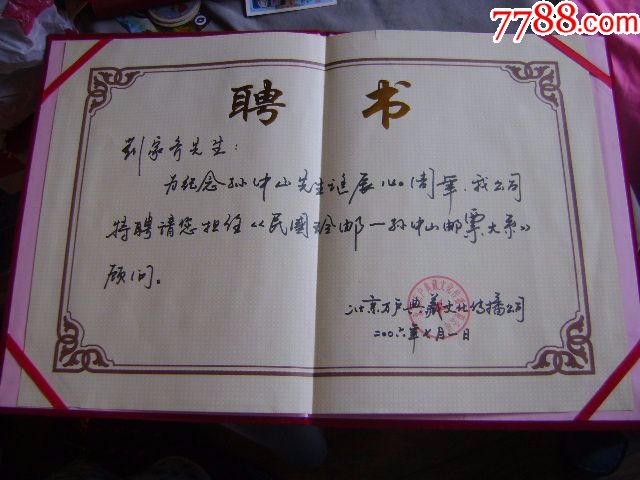 7788.com
聘书
刘家奇先生:
为纪念孙中山先生诞辰140周年,我公司
特聘请您担任《民国珍邮—孙中山邮票大系》
顾问。
北京万户典藏文化传播公司
二00六年七月一日